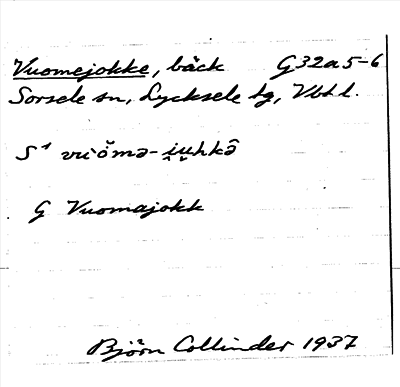 Vuomejokke, bäck G32a5-6
Sorsele sn, Lycksele tg, Vbt l.
S¹
G Vuomajokk
Björn Collinder 1937